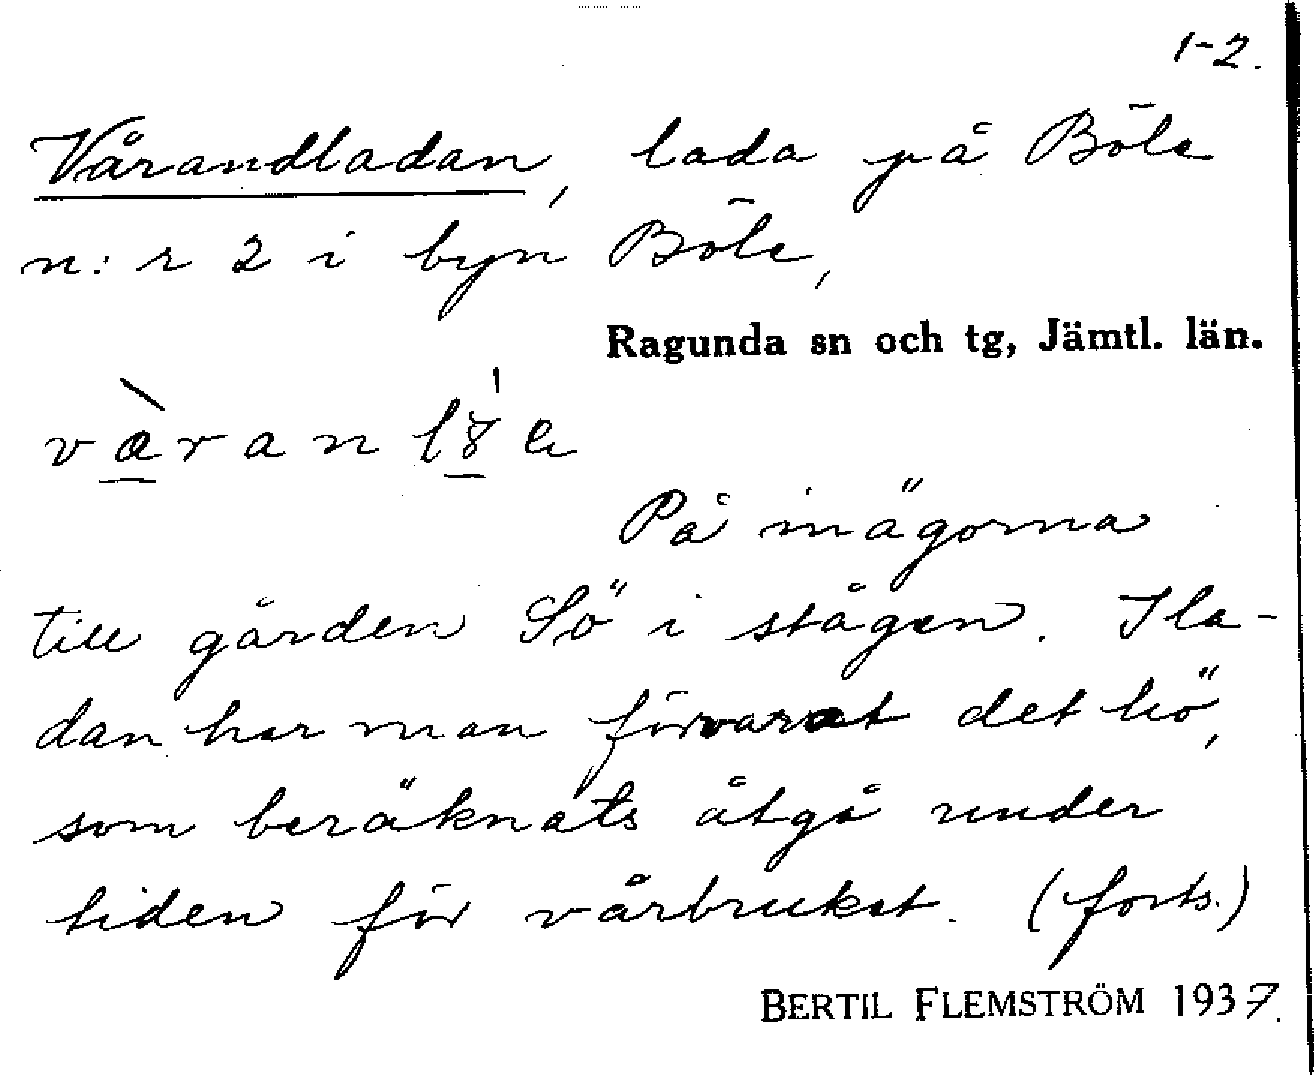 1-2.
Vårandladan, lada på Böle
n:r 2 i byn Böle,
Ragunda sn och tg, Jämtl. län.
På inägorna
till gården Sö i stågen. I la-
dan har man förvarat det hö,
som beräknats åtgå under
tiden för vårbruket. (forts.)
BERTIL FLEMSTRÖM 1937.